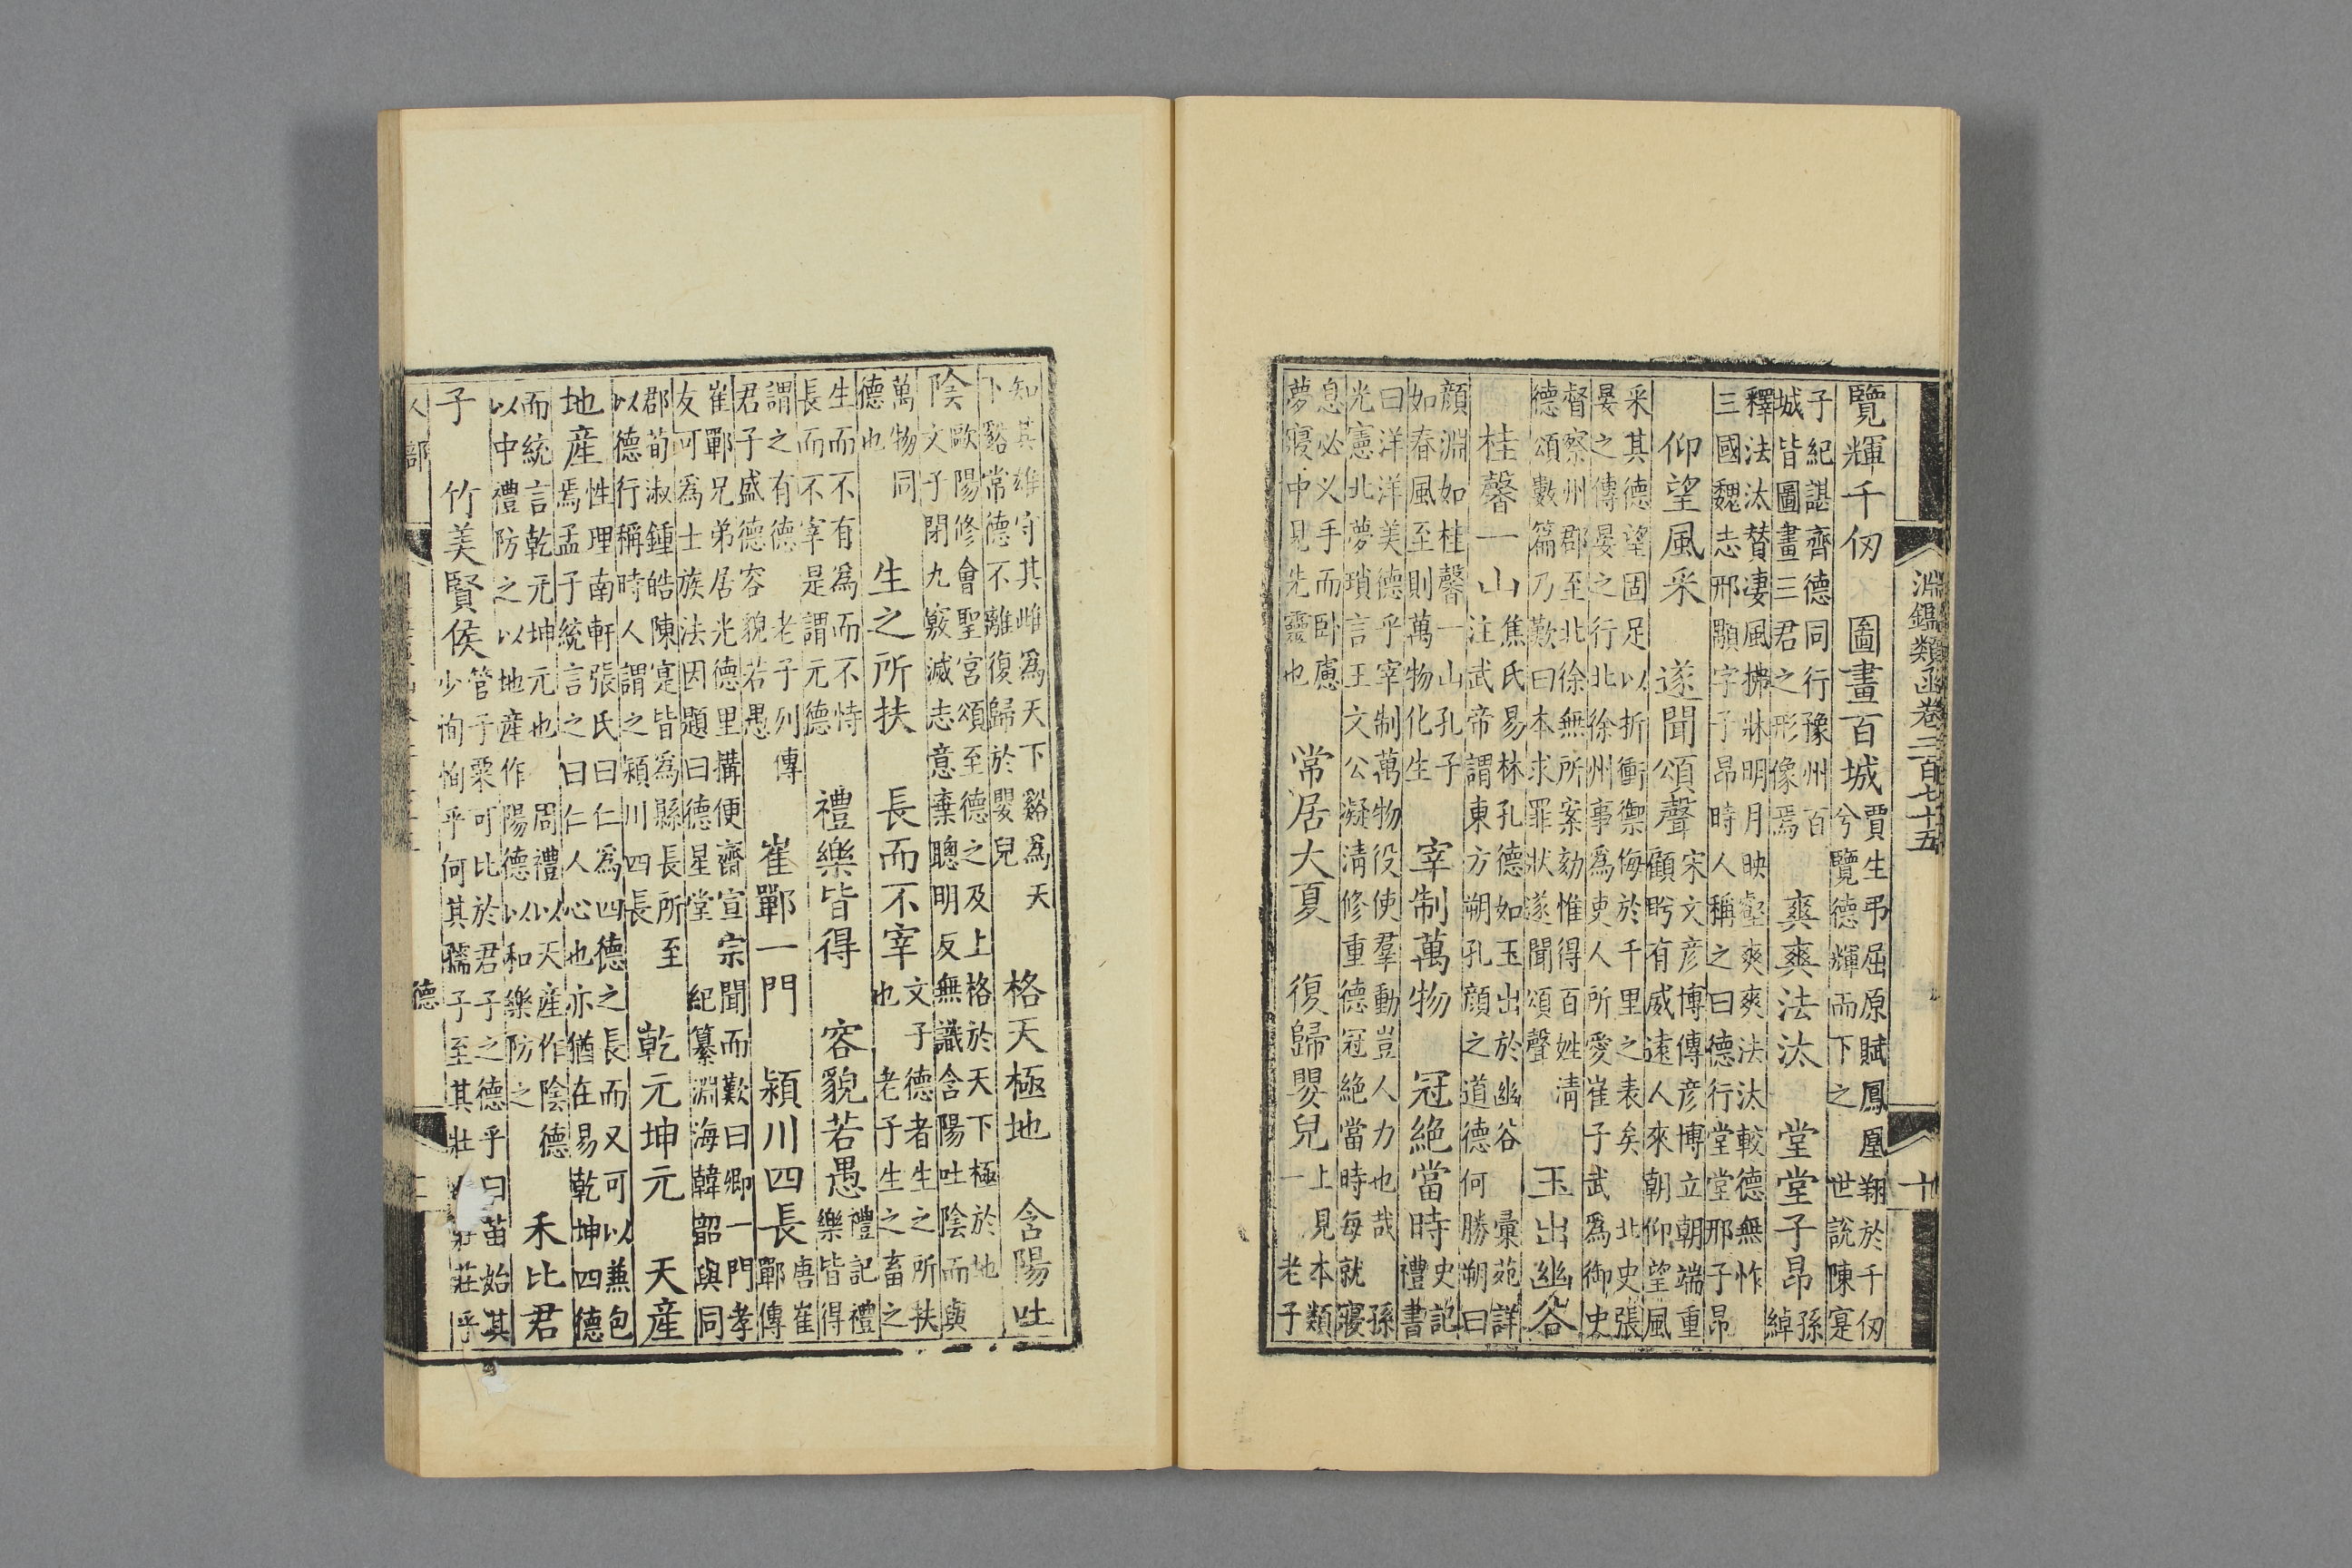 淵鑑類函卷二百七十五 十
覽輝千仞 圖畫百城 賈生弔屈原賦鳳凰翔於千仞兮覽德輝而下之 世說陳寔
子紀諶齊德同行豫州百城皆圖畫三君之形像焉 爽爽法汰 堂堂子昂 孫綽
釋法汰贊凄風拂牀明月映壑爽爽法汰較德無怍 三國魏志邢顒字子昂時人稱之曰德行堂堂邢子昂
仰望風采 遂聞頌聲 宋文彥博傳彥博立朝端重顧盻有威遠人來朝仰望風
采其德望固足以折衝禦侮於千里之表矣 北史張晏之傳晏之行北徐州事為吏人所愛崔子武為御史
督察州郡至北徐無所案劾惟得百姓清德頌數篇乃歎曰本求罪狀遂聞頌聲 玉出幽谷
桂馨一山 焦氏易林孔德如玉出於幽谷 彙苑詳注武帝謂東方朔孔顏之道德何勝朔曰
顏淵如桂馨一山孔子如春風至則萬物化生 宰制萬物 冠絕當時 史記禮書
曰洋洋美德乎宰制萬物役使羣動豈人力也哉 孫光憲北夢瑣言王文公凝清修重德冠絕當時每就寢
息必叉手而卧慮夢寢中見先靈也 常居大夏 復歸嬰兒 上見本類一 老子
知其雄守其雌為天下谿為天下谿常德不離復歸於嬰兒 格天極地 含陽吐
陰 歐陽修會聖宮頌至德之及上格於天下極於地 文子閉九竅滅志意棄聰明反無識含陽吐陰而與
萬物同德也 生之所扶 長而不宰 文子德者生之所扶也 老子生之畜之
生而不有為而不恃長而不宰是謂元德 禮樂皆得 容貌若愚 禮記禮樂皆得
謂之有德 老子列傳君子盛德容貌若愚 崔鄲一門 潁川四長 唐崔鄲傳
崔鄲兄弟居光德里搆便齋宣宗聞而歎曰卿一門孝友可為士族法因題曰德星堂 紀纂淵海韓韶與同
郡荀淑鍾皓陳寔皆為縣長所至以德行稱時人謂之潁川四長 乾元坤元 天產
地產 性理南軒張氏曰仁為四德之長而又可以兼包焉孟子統言之曰仁人心也亦猶在易乾坤四德
而統言乾元坤元也 周禮以天產作陰德以中禮防之以地產作陽德以和樂防之 禾比君
子 竹美賢侯 管子粟可比於君子之德乎曰苗始其少恂恂乎何其孺子至其壯莊乎
人部 德